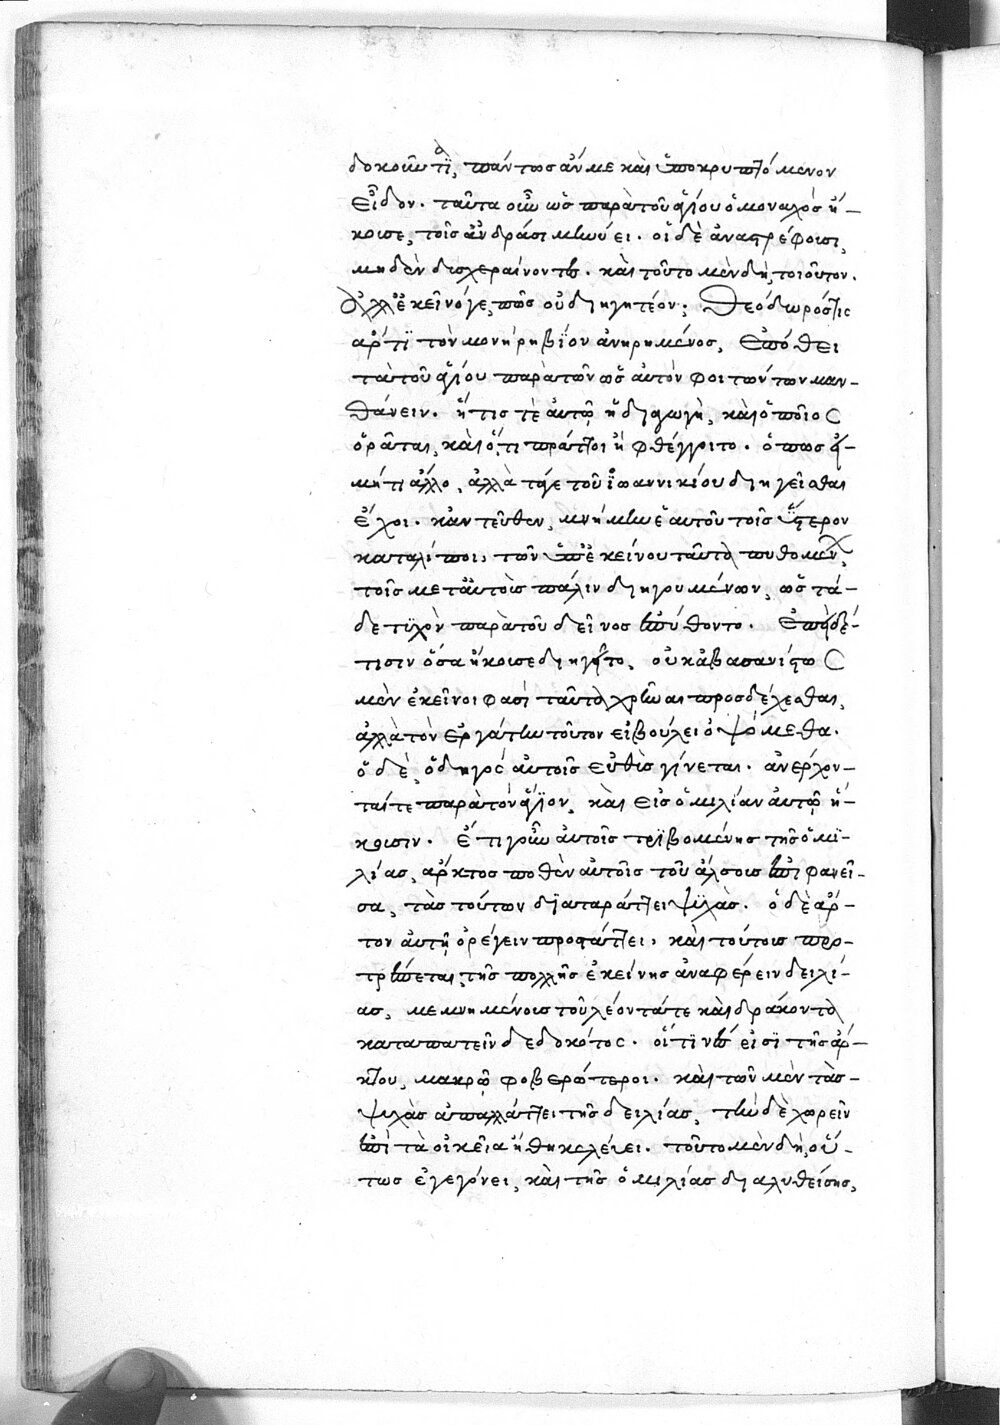 δοκοῦν τὶ, πάντως ἄν με καὶ ὑποκρυπτόμενον
εἶδον. ταῦτα οὖν ὡς παρὰ τοῦ ἁγίου ὁ μοναχὸς ἤ-
κουσε, τοῖς ἀνδράσι μηνύει. οἱ δὲ ἀναστρέφουσι,
μηδὲν δυσχεραίνοντες. καὶ τοῦτο μὲν δὴ τοιοῦτον.
ἀλλ' ἐκεῖνό γε, πῶς οὐ διηγητέον; Θεόδωρός τις
ἄρτι τὸν μονήρη βίον ἀνῃρημένος, ἐπόθει
τὰ τοῦ ἁγίου παρὰ τῶν ὡς αὐτὸν φοιτώντων μαν-
θάνειν. ἥτις τὲ αὐτῷ ἡ διαγωγὴ, καὶ ὁποῖος
ὁρᾶται, καὶ ὅ,τι πράττοι ἢ φθέγγοιτο. ὅπως
μήτι ἄλλο, ἀλλὰ τά γε τοῦ ἰωαννικίου διηγεῖσθαι
ἔχοι. κἀντεῦθεν, μνήμην ἑαυτοῦ τοῖς ὕστερον
καταλίποι, τῶν ὑπ' ἐκείνου ταῦτα πυθομένων,
τοῖς μετ' αὐτοὺς πάλιν διηγουμένων, ὡς τά-
δε τυχὸν παρὰ τοῦ δεῖνος ἐπύθοντο. ἐπεὶ δέ
τισιν ὅσα ἤκουσε διηγεῖτο, οὐκ ἀβασανίστως
μὲν ἐκεῖνοι φασὶ ταῦτα χρῆναι προσδέχεσθαι,
ἀλλὰ τὸν ἐργάτην τοῦτον εἰ βούλει ὀψόμεθα.
ὁ δὲ, ὁδηγὸς αὐτοῖς εὐθὺς γίνεται. ἀνέρχον-
ταί τε παρὰ τὸν ἅγιον, καὶ εἰς ὁμιλίαν αὐτῷ ἥ-
κουσιν. ἔτι γοῦν αὐτοῖς τριβομένης τῆς ὁμι-
λίας, ἄρκτος ποθὲν αὐτοῖς τοῦ ἄλσους ἐπιφανεῖ-
σα, τὰς τούτων διαταράττει ψυχὰς. ὁ δὲ ἄρ-
τον αὐτῇ ὀρέγειν προστάττει, καὶ τούτοις προ-
τρέπεται, τῆς πολλῆς ἐκείνης ἀναφέρειν δειλί-
ας, μεμνημένοις τοῦ λέοντά τε καὶ δράκοντα
καταπατεῖν δεδωκότος. οἵτινές εἰσι τῆς ἄρ-
κτου, μακρῷ φοβερώτεροι. καὶ τῶν μὲν τὰς
ψυχὰς ἀπαλλάττει τῆς δειλίας, τὴν δὲ χωρεῖν
ἐπὶ τὰ οἰκεῖα ἤθη κελεύει. τοῦτο μὲν δὴ οὕ-
τως ἐγεγόνει, καὶ τῆς ὁμιλίας διαλυθείσης,